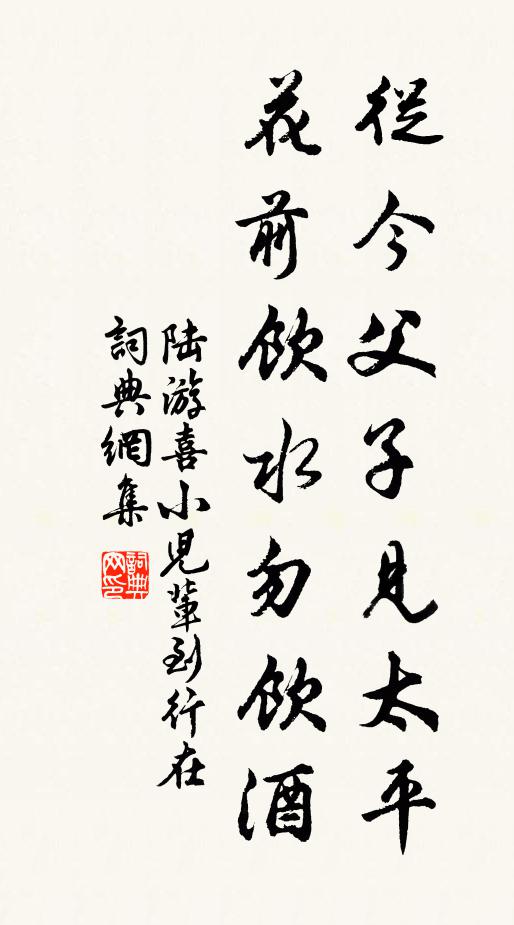 從今父子見太平
花前飲水勿飲酒
陸游喜小児輩到行在
詞典網集
詞典
网印